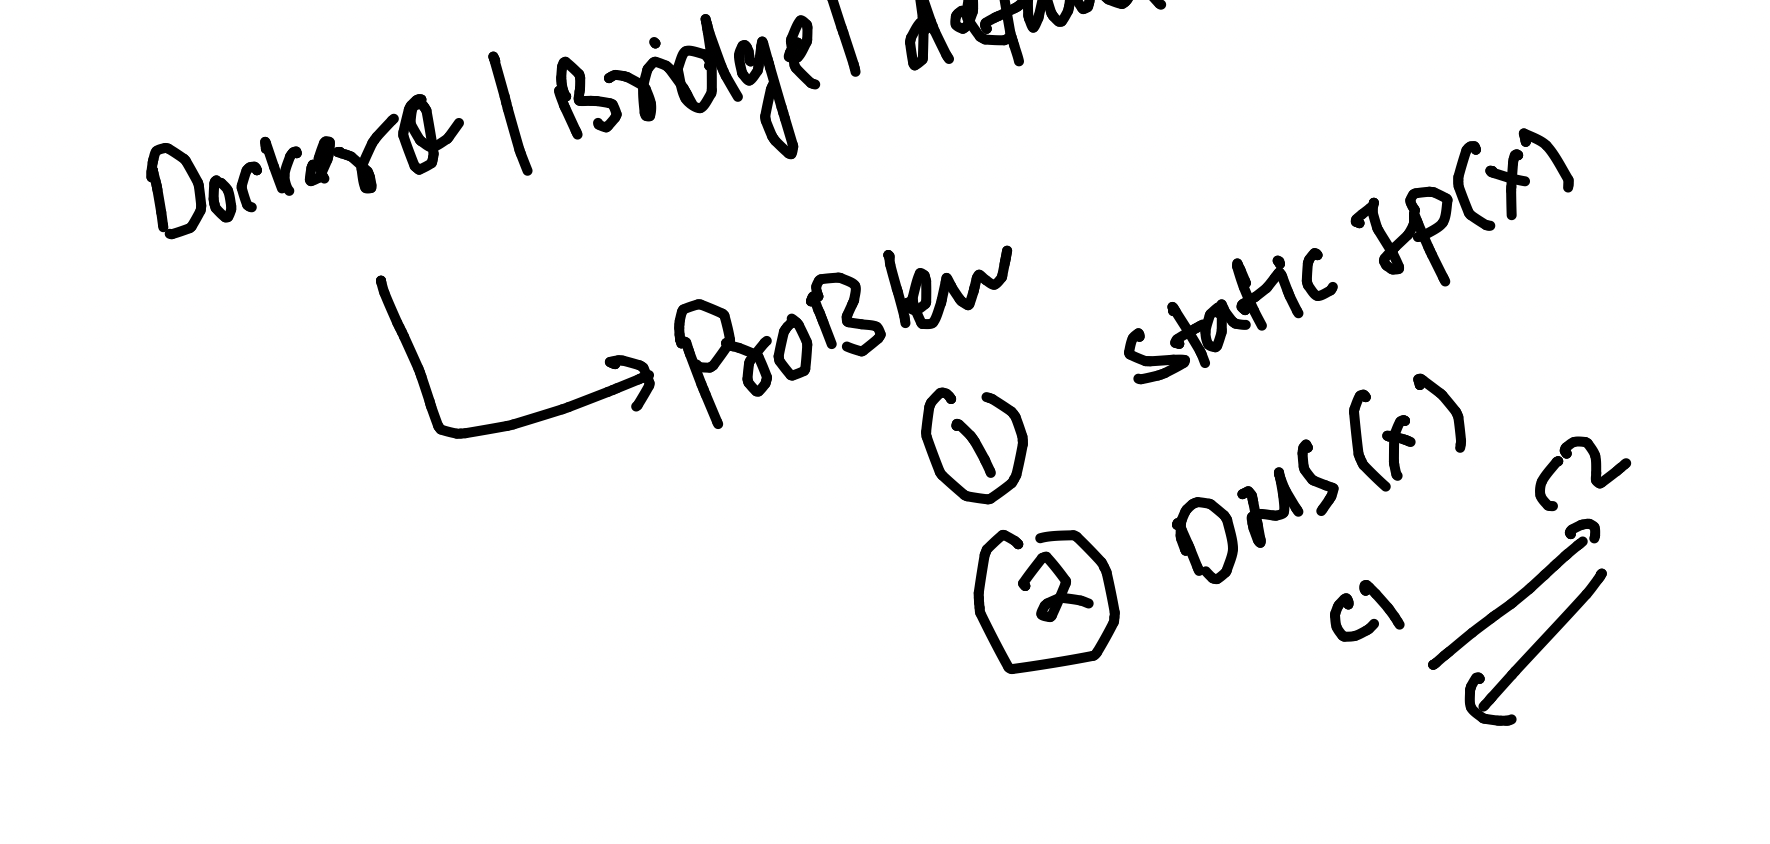 Docker0 / Bridge / default
ProBlem
① static IP(x)
② DNS(x)
C1 C2